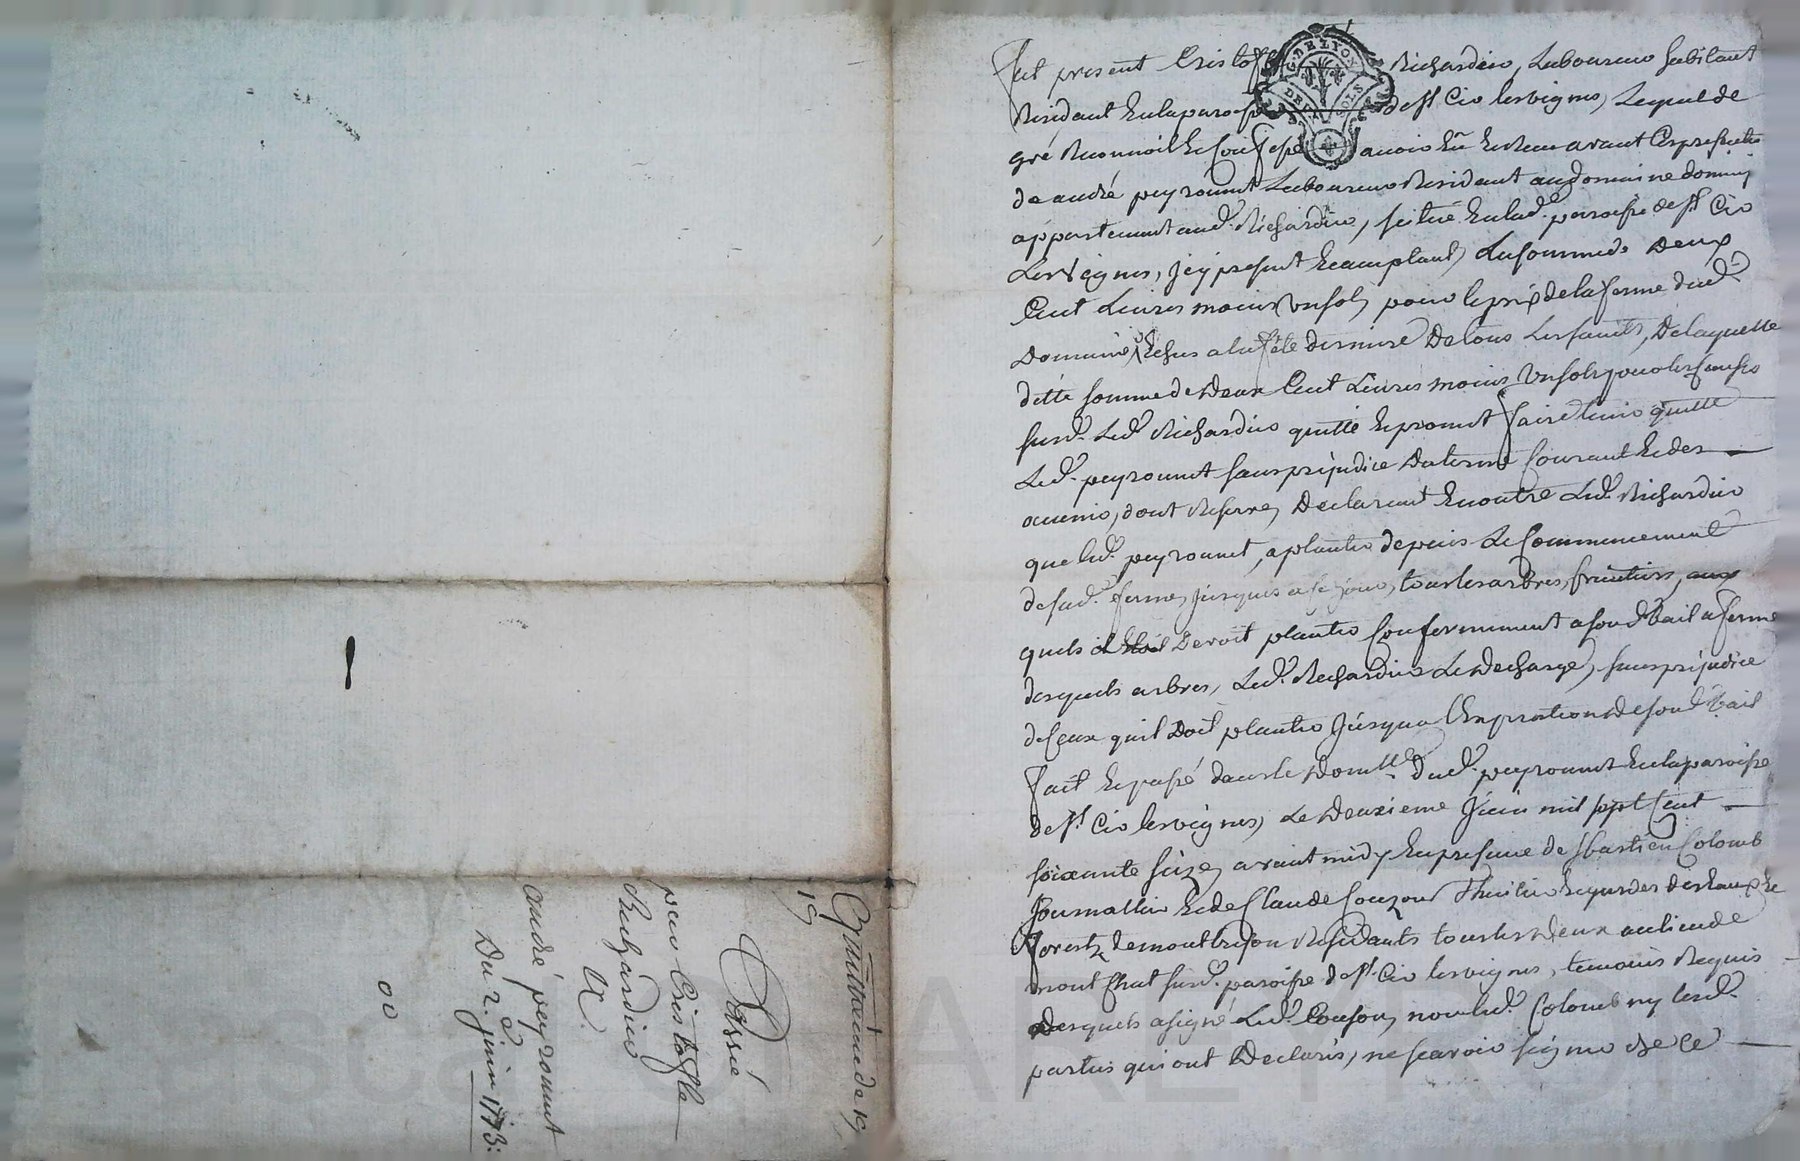 fut present Cristofle Richardier, Laboureur habitant
Residant En la paroisse de st Cir les vignes, Lequel de
gré Reconnoit Et Confesse avoir Eu Et Receu avant Ces presentes
de andré peyronnet Laboureur Residant au domaine
appartenant aud. Richardier, scitué En lad. paroisse de st Cir
Les Vignes, icy present Et acceptant, La somme de Deux
Cent Livres moins Un sols, pour le prix de la ferme dud.
Domaine, Echus a la fête derniere De tous Les saints, De laquelle
ditte somme de Deux Cent Livres moins Un sols
susd. Led. Richardier quitte Et promet faire tenir quitte
Led. peyronnet sans prejudice Du terme Courant Et des
avenir, dont Reserve, Declarant En outre Led. Richardier
que led. peyronnet, a planter depuis Le Commencement
de sad. ferme, jusques a ce jour, tous les arbres, fruitiers, aux
quels il Devoit planter Conformement a sond. bail a ferme
desquels arbres, Led. Richardier Le Decharge, sans prejudice
de Ceux quil Doit planter Jusqua l'Expiration de sond. bail
fait Et passé dans le Domlle. Dud. peyronnet En la paroisse
de st. Cir les vignes, Le Deuxieme Juin mil sept Cent
soixante seize, avant midy En presence de sbastien Colomb
journallier Et de Claude Couzon Thuilier Et gardes des Eaux Et
forests de montbrison Residants tous les Deux au lieu de
mont Chat susd. paroisse de st. Cir les vignes, temoins Requis
Desquels a signé Led. Couson, non led. Colomb ny lesd.
parties qui ont Declarés, ne scavoir signer de Ce
19
Quittance de 19
Passé
par Cristofle
Richardier
A.
andré peyronnet
Du 2. juin 1773.
00